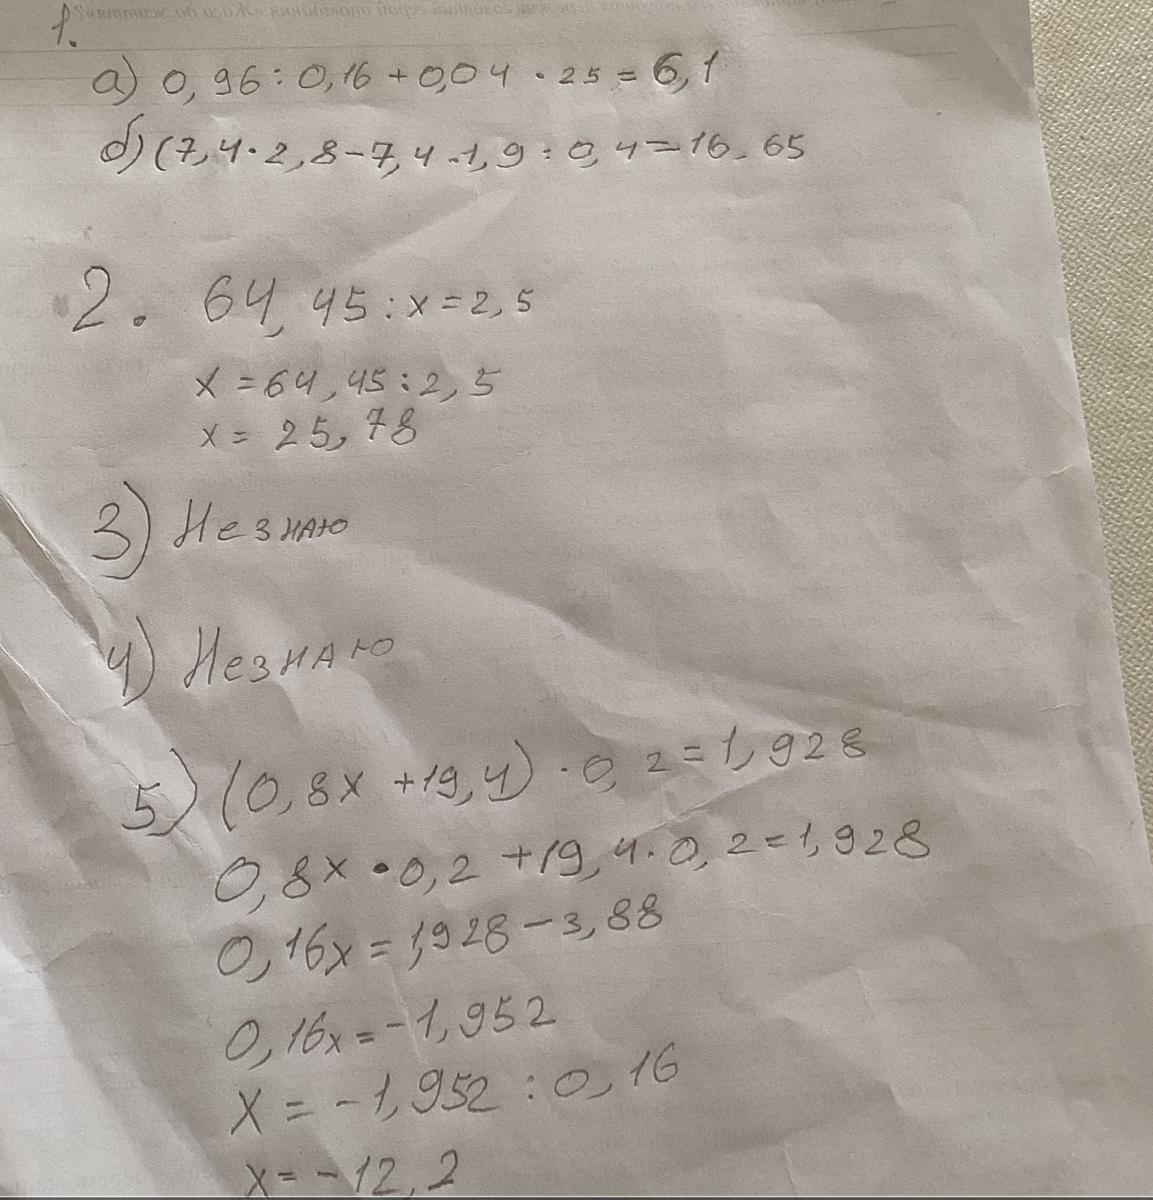 1.
а) 0,96 : 0,16 + 0,04 · 25 = 6,1
б) (7,4 · 2,8 – 7,4 · 1,9 : 0,4 = 16.65
2. 64,45 : x = 2,5
x = 64,45 : 2,5
x = 25,78
3) Незнаю
4) Незнаю
5) (0,8x + 19,4) · 0,2 = 1,928
0,8x · 0,2 + 19,4 · 0,2 = 1,928
0,16x = 1,928 – 3,88
0,16x = – 1,952
x = – 1,952 : 0,16
x = – 12,2